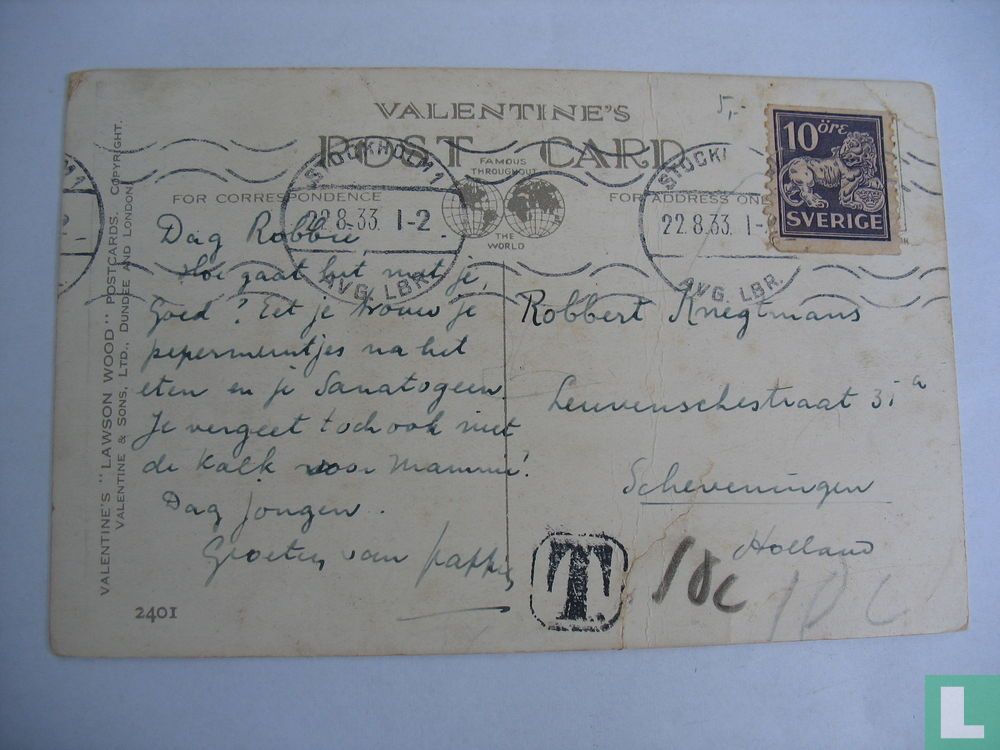 VALENTINE'S
POST CARD
FAMOUS
THROUGHOUT
THE
WORLD
FOR CORRESPONDENCE
FOR ADDRESS ONL
5,-
10 ÖRE
SVERIGE
STOCKHOLM 1
22.8.33. 1-2
AVG. LBR.
STOCK
22.8.33. 1-
AVG. LBR.
VALENTINE'S "LAWSON WOOD" POSTCARDS.
VALENTINE & SONS, LTD., DUNDEE AND LONDON. COPYRIGHT.
Dag Robbie,
Hoe gaat het met je,
Goed? Eet je trouw je
pepermuntjes na het
eten en je Sanatogeen.
Je vergeet toch ook niet
de Kalk voor Mammie!
Dag jongen.
Groeten van pappie
Robbert Knegtmans
Leuvenschestraat 35 a
Scheveningen
Holland
T
10c
10c
2401
L